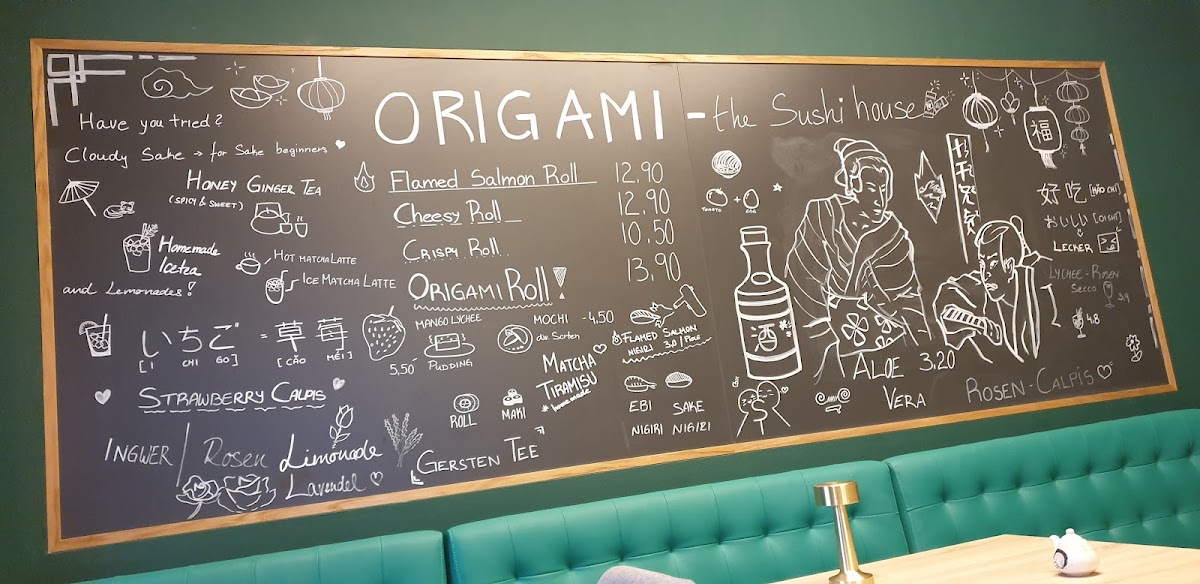 ORIGAMI - the Sushi house
Have you tried?
Cloudy Sake → for Sake beginners
HONEY GINGER TEA
(SPICY & SWEET)
Homemade
Icetea
and Lemonades!
HOT MATCHA LATTE
ICE MATCHA LATTE
いちご = 草莓
[I CHI GO] [CǍO MÉI]
STRAWBERRY CALPIS
INGWER / Rosen Limonade
Lavendel
Flamed Salmon Roll 12.90
Cheesy Roll 12.90
CRISPY Roll 10.50
ORIGAMI Roll! 13.90
MANGO LYCHEE
PUDDING
5,50
MOCHI -4,50
div. Sorten
MATCHA
TIRAMISU
*homemade
ROLL
MAKI
GERSTEN TEE
FLAMED SALMON
NIGIRI 3.0 / Piece
EBI
NIGIRI
SAKE
NIGIRI
TOMATO + EGG
酒
ALOE 3.20
VERA
福
好吃 [HǍO CHĪ]
おいしい [OISHI]
LECKER
LYCHEE-ROSEN
SECCO 3.9
4.8
ROSEN-CALPIS